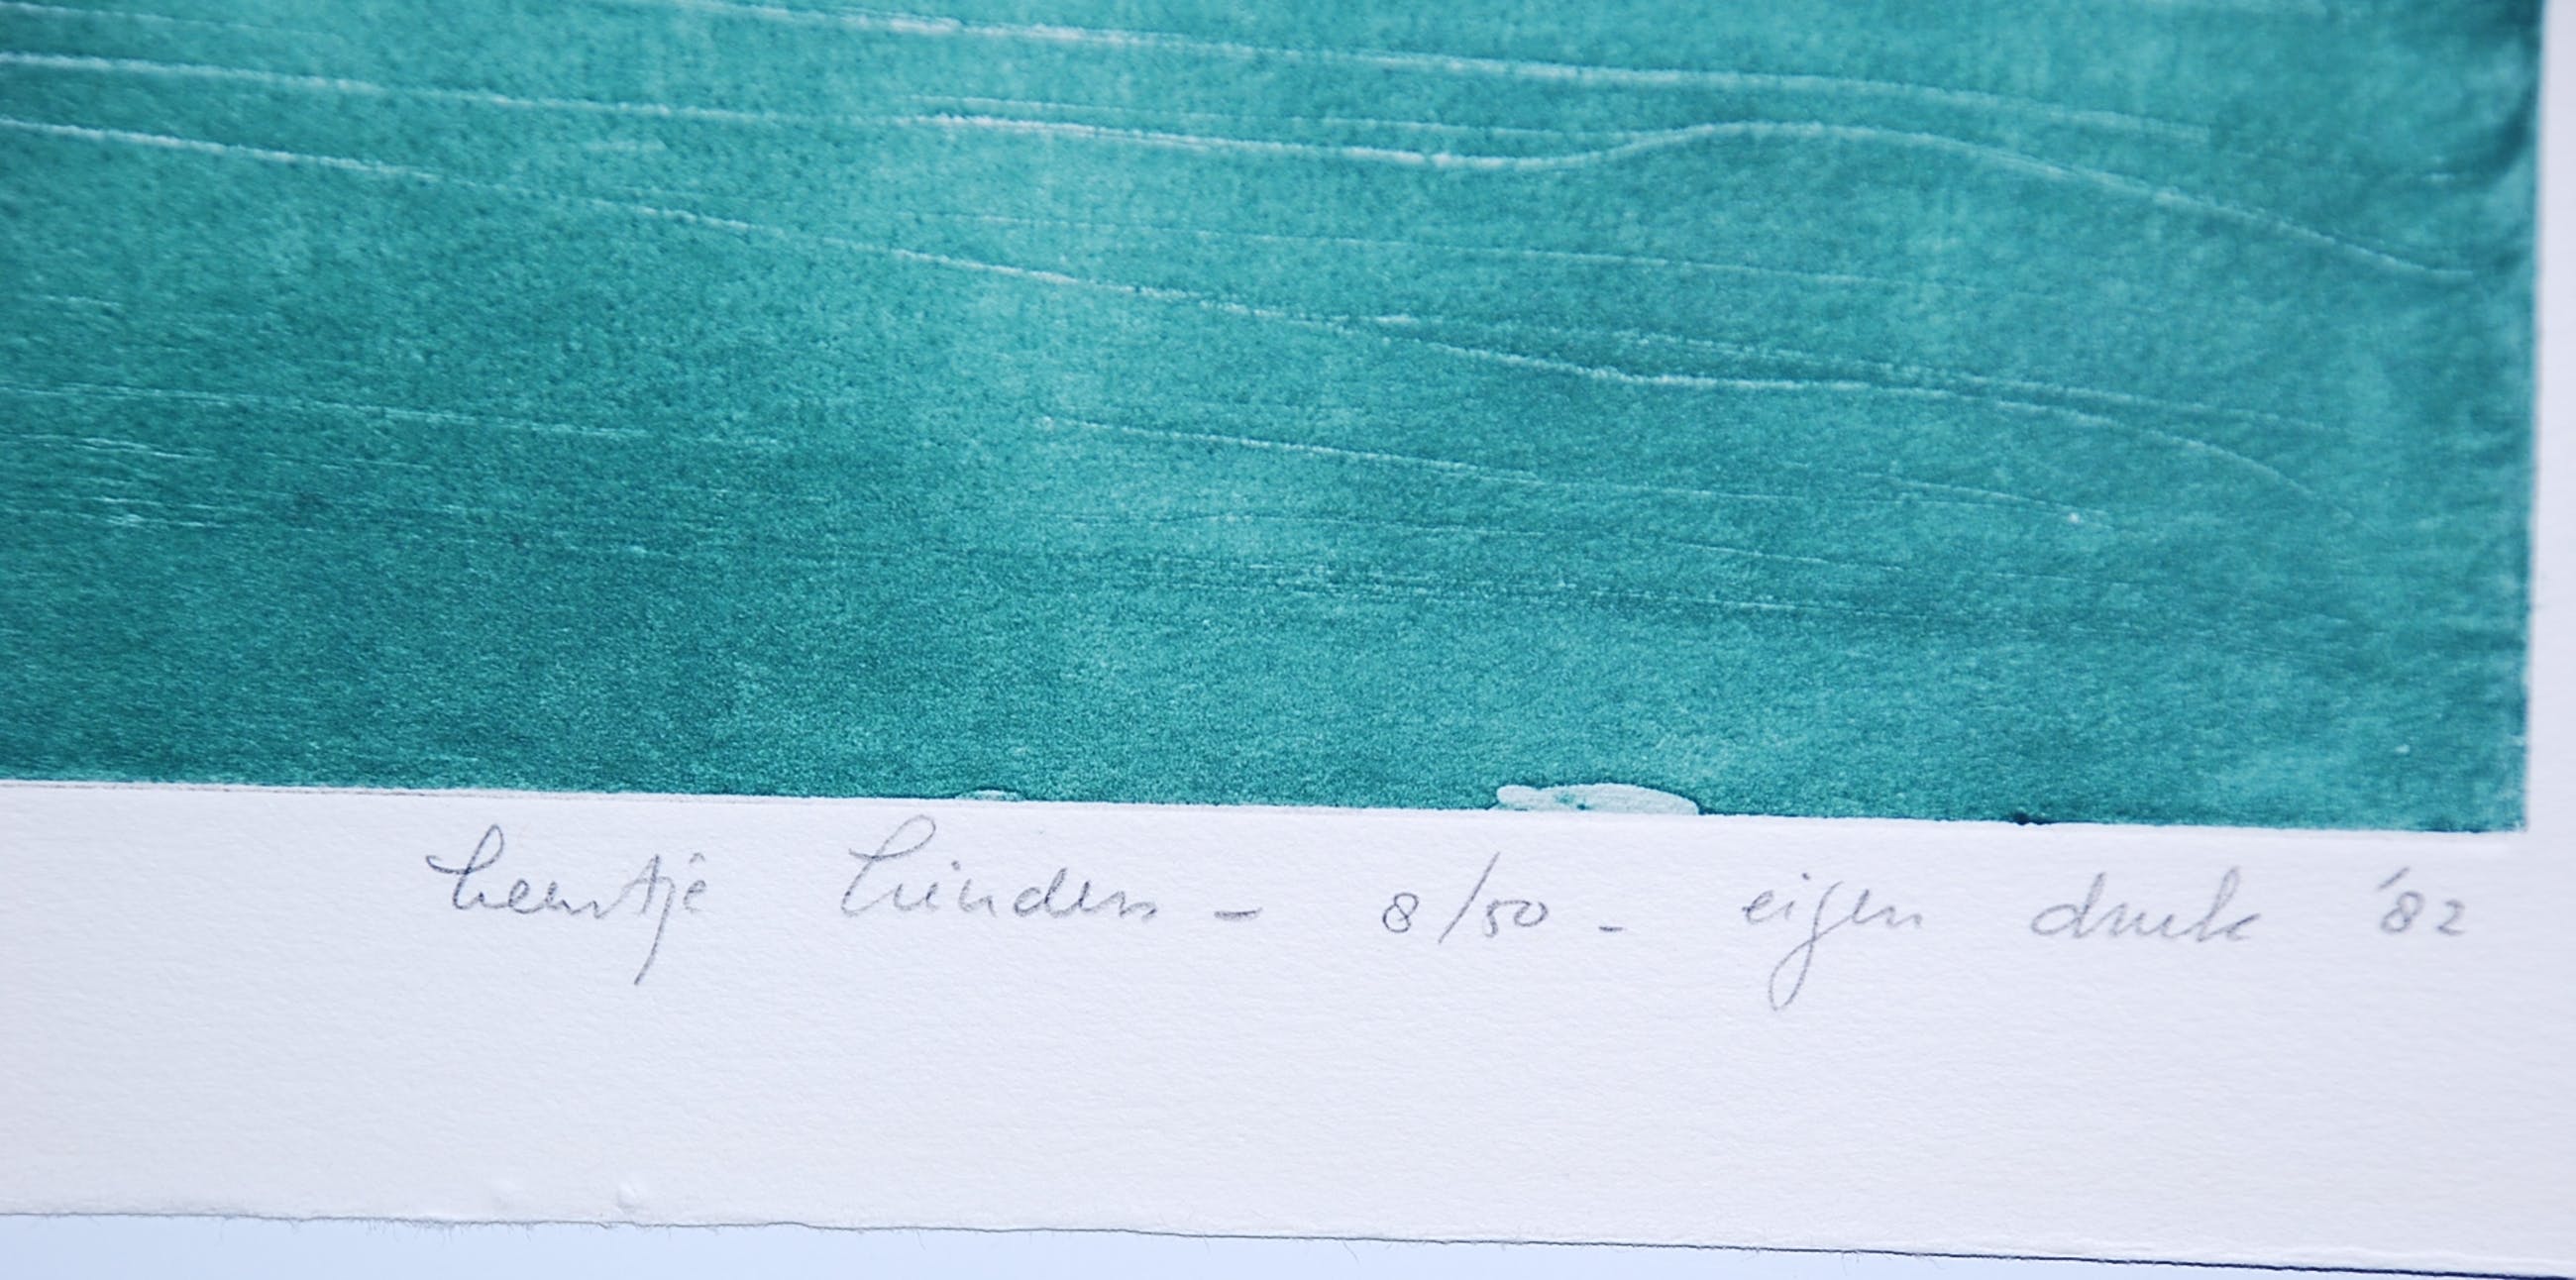 Leentje Linders - 8/50 - eigen druk '82